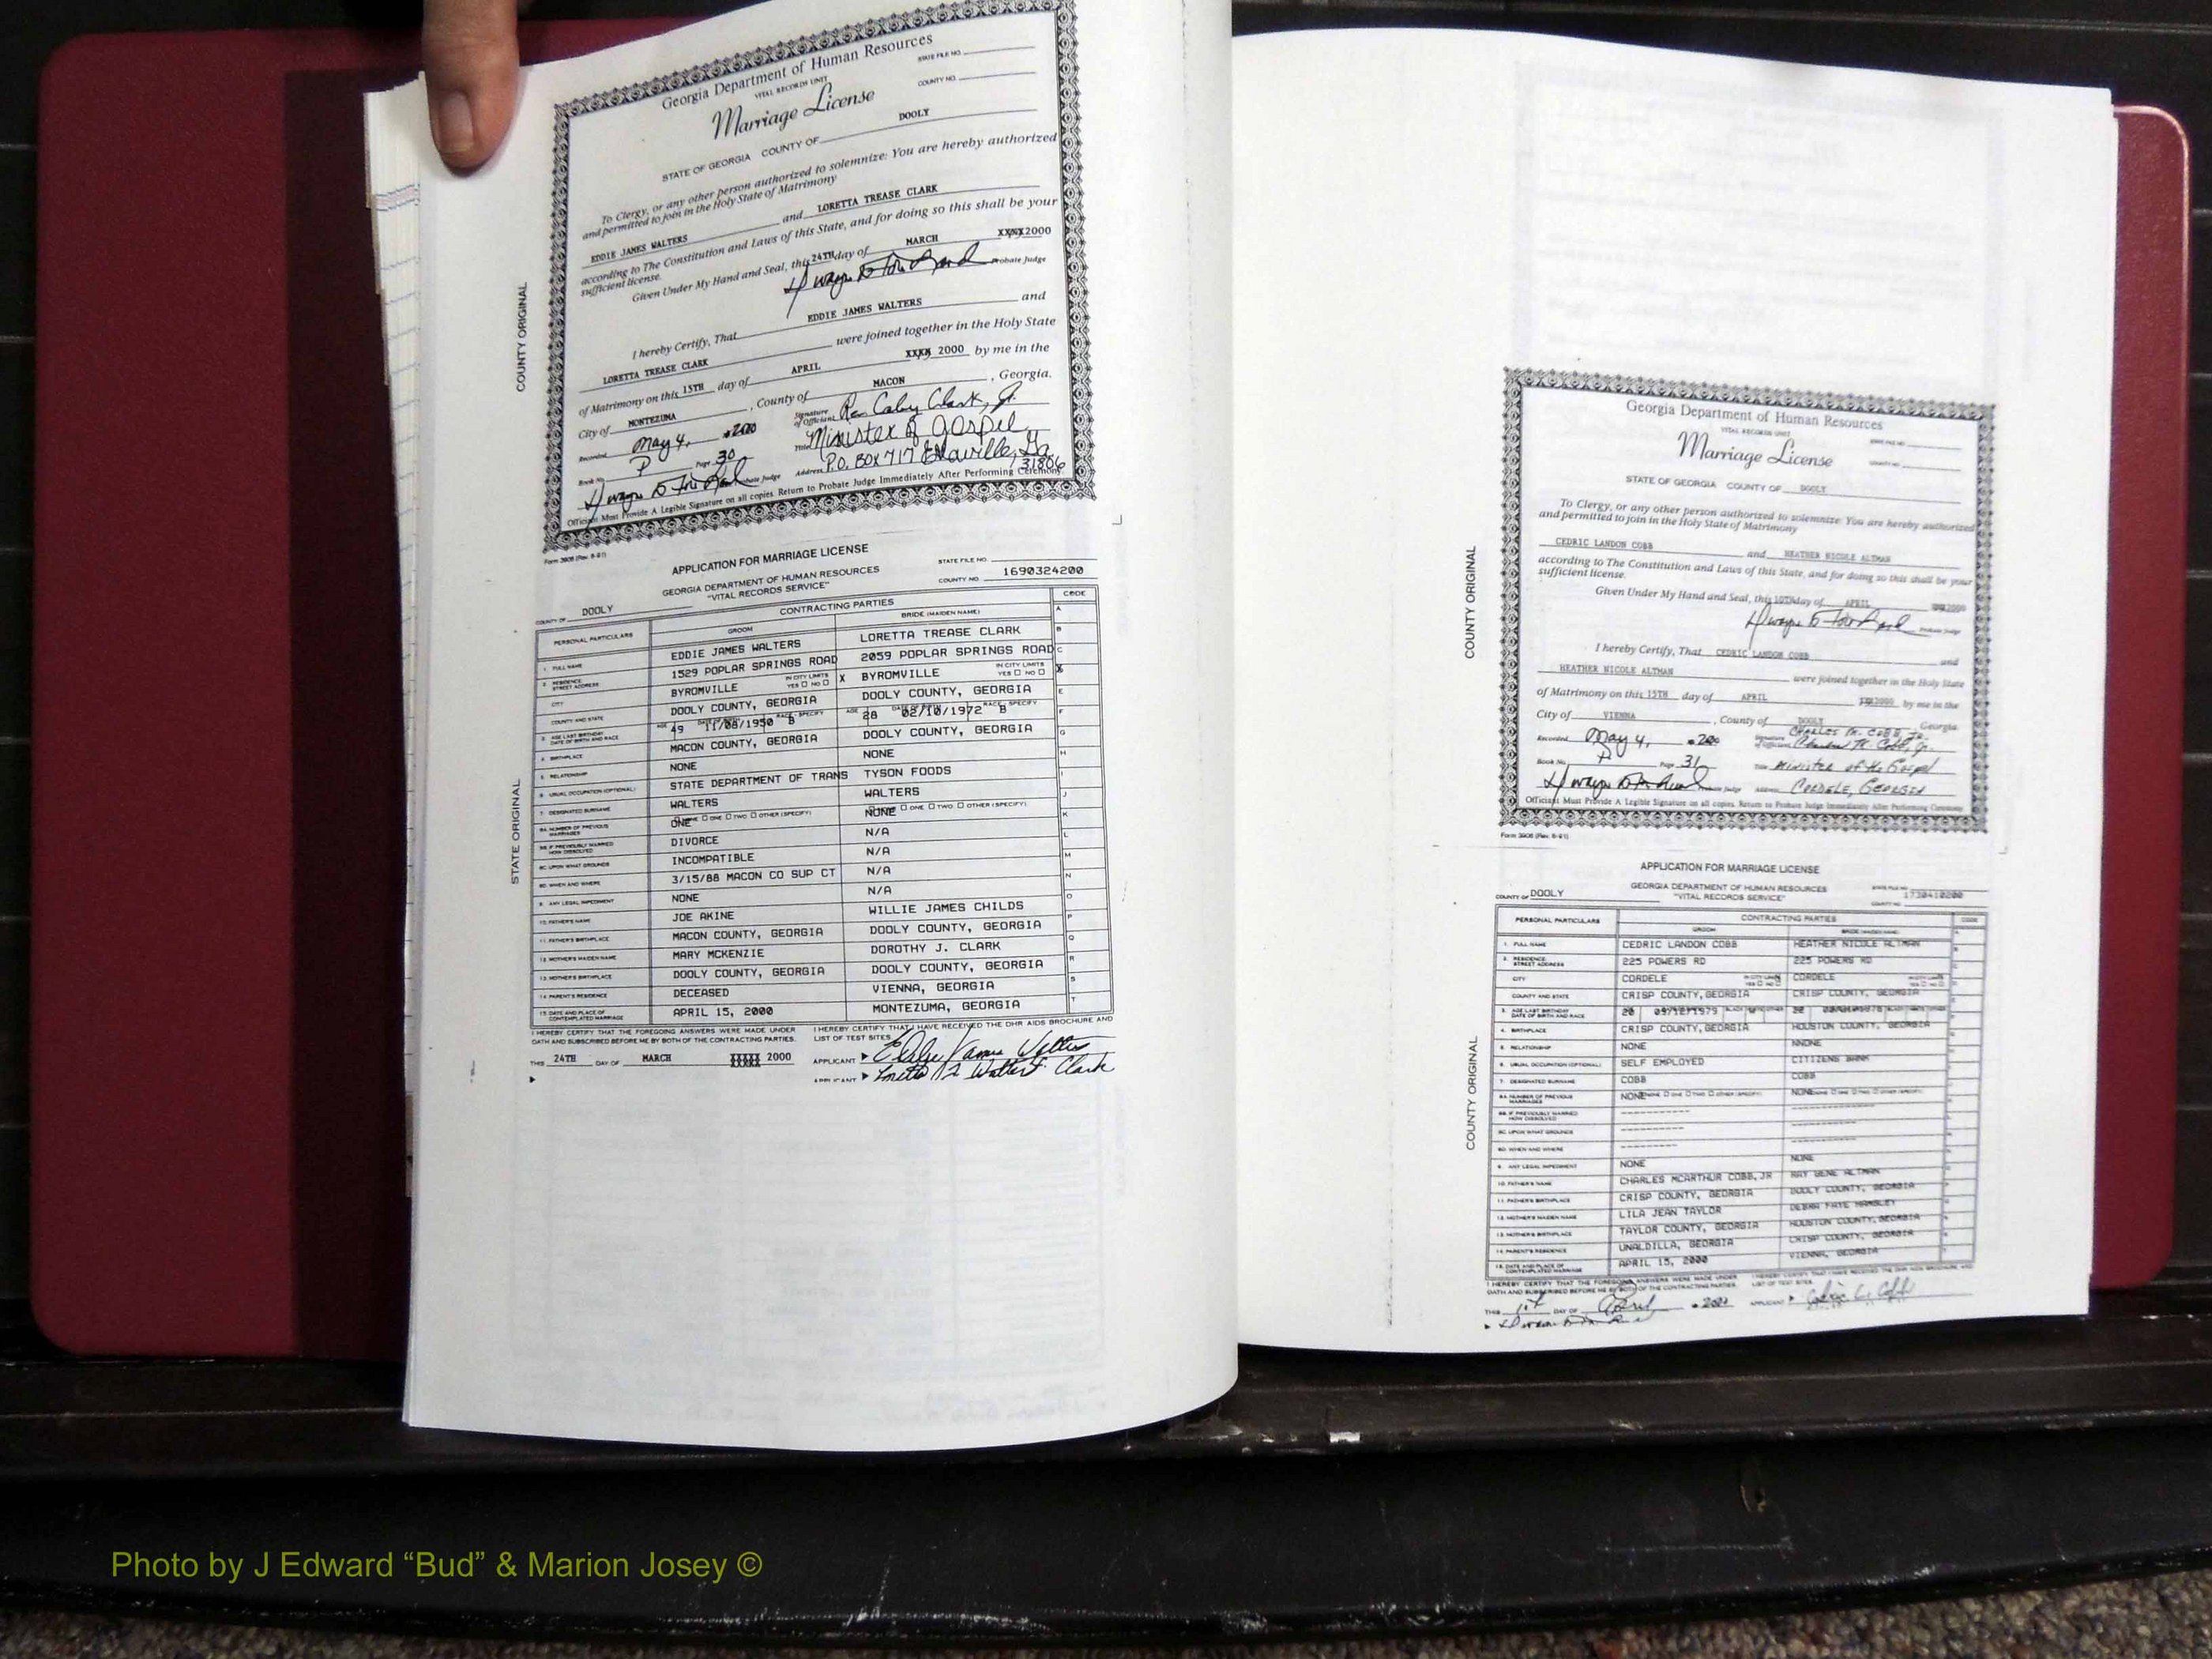 Georgia Department of Human Resources
VITAL RECORDS UNIT
STATE FILE NO.
COUNTY NO.
Marriage License
STATE OF GEORGIA COUNTY OF DOOLY
To Clergy, or any other person authorized to solemnize: You are hereby authorized
and permitted to join in the Holy State of Matrimony
EDDIE JAMES WALTERS and LORETTA TREASE CLARK
according to The Constitution and Laws of this State, and for doing so this shall be your
sufficient license.
Given Under My Hand and Seal, this 24TH day of MARCH XXXX 2000
Probate Judge
I hereby Certify, That EDDIE JAMES WALTERS and
LORETTA TREASE CLARK were joined together in the Holy State
of Matrimony on this 15TH day of APRIL XXXX 2000 by me in the
City of MONTEZUMA, County of MACON, Georgia.
Recorded May 4, 2000 Signature of Official Rev. Clark, Jr.
Book No. P Page 30 Title Minister of Gospel
Probate Judge Address P.O. Box 717 Ellaville, Ga 31806
Official Must Provide A Legible Signature on all copies. Return to Probate Judge Immediately After Performing Ceremony.
Form 3906 (Rev. 8-91)
COUNTY ORIGINAL
APPLICATION FOR MARRIAGE LICENSE
GEORGIA DEPARTMENT OF HUMAN RESOURCES
"VITAL RECORDS SERVICE"
STATE FILE NO.
COUNTY NO. 1690324200
COUNTY OF DOOLY
PERSONAL PARTICULARS CONTRACTING PARTIES CODE
GROOM BRIDE (MAIDEN NAME)
1. FULL NAME EDDIE JAMES WALTERS LORETTA TREASE CLARK
2. RESIDENCE STREET ADDRESS 1529 POPLAR SPRINGS ROAD 2059 POPLAR SPRINGS ROAD
CITY BYROMVILLE IN CITY LIMITS YES NO X BYROMVILLE IN CITY LIMITS YES NO X
COUNTY AND STATE DOOLY COUNTY, GEORGIA DOOLY COUNTY, GEORGIA
3. AGE LAST BIRTHDAY DATE OF BIRTH AND RACE 49 11/08/1950 B 28 02/10/1972 B
4. BIRTHPLACE MACON COUNTY, GEORGIA DOOLY COUNTY, GEORGIA
5. RELATIONSHIP NONE NONE
6. USUAL OCCUPATION (OPTIONAL) STATE DEPARTMENT OF TRANS TYSON FOODS
7. DESIGNATED SURNAME WALTERS WALTERS
8A. NUMBER OF PREVIOUS MARRIAGES ONE NONE
8B. IF PREVIOUSLY MARRIED HOW DISSOLVED DIVORCE N/A
8C. UPON WHAT GROUNDS INCOMPATIBLE N/A
8D. WHEN AND WHERE 3/15/88 MACON CO SUP CT N/A
9. ANY LEGAL IMPEDIMENT NONE N/A
10. FATHER'S NAME JOE AKINE WILLIE JAMES CHILDS
11. FATHER'S BIRTHPLACE MACON COUNTY, GEORGIA DOOLY COUNTY, GEORGIA
12. MOTHER'S MAIDEN NAME MARY MCKENZIE DOROTHY J. CLARK
13. MOTHER'S BIRTHPLACE DOOLY COUNTY, GEORGIA DOOLY COUNTY, GEORGIA
14. PARENT'S RESIDENCE DECEASED VIENNA, GEORGIA
15. DATE AND PLACE OF CONTEMPLATED MARRIAGE APRIL 15, 2000 MONTEZUMA, GEORGIA
I HEREBY CERTIFY THAT THE FOREGOING ANSWERS WERE MADE UNDER
OATH AND SUBSCRIBED BEFORE ME BY BOTH OF THE CONTRACTING PARTIES.
I HEREBY CERTIFY THAT I HAVE RECEIVED THE DHR AIDS BROCHURE AND
LIST OF TEST SITES.
THIS 24TH DAY OF MARCH XXXXX 2000
APPLICANT Eddie James Walters
APPLICANT Clark
STATE ORIGINAL
Georgia Department of Human Resources
VITAL RECORDS UNIT
Marriage License
STATE OF GEORGIA COUNTY OF DOOLY
To Clergy, or any other person authorized to solemnize: You are hereby authorized
and permitted to join in the Holy State of Matrimony
CEDRIC LANDON COBB and HEATHER NICOLE ALTMAN
according to The Constitution and Laws of this State, and for doing so this shall be your
sufficient license.
Given Under My Hand and Seal, this 10TH day of APRIL 2000
Probate Judge
I hereby Certify, That CEDRIC LANDON COBB and
HEATHER NICOLE ALTMAN were joined together in the Holy State
of Matrimony on this 15TH day of APRIL 2000 by me in the
City of VIENNA, County of DOOLY Georgia
CHARLES M. COBB, JR.
Recorded May 4, 2000 Signature of Official Charles M. Cobb, Jr.
Book No. P Page 31 Title Minister of the Gospel
Probate Judge Address CORDELE, GEORGIA
Official Must Provide A Legible Signature on all copies. Return to Probate Judge Immediately After Performing Ceremony
Form 3906 (Rev. 8-91)
COUNTY ORIGINAL
APPLICATION FOR MARRIAGE LICENSE
GEORGIA DEPARTMENT OF HUMAN RESOURCES
"VITAL RECORDS SERVICE"
COUNTY OF DOOLY
1730410200
PERSONAL PARTICULARS CONTRACTING PARTIES CODE
GROOM BRIDE (MAIDEN NAME)
1. FULL NAME CEDRIC LANDON COBB HEATHER NICOLE ALTMAN
2. RESIDENCE STREET ADDRESS 225 POWERS RD 225 POWERS RD
CITY CORDELE CORDELE
COUNTY AND STATE CRISP COUNTY, GEORGIA CRISP COUNTY, GEORGIA
3. AGE LAST BIRTHDAY DATE OF BIRTH AND RACE 20
4. BIRTHPLACE CRISP COUNTY, GEORGIA HOUSTON COUNTY, GEORGIA
5. RELATIONSHIP NONE NNONE
6. USUAL OCCUPATION (OPTIONAL) SELF EMPLOYED CITIZENS BANK
7. DESIGNATED SURNAME COBB COBB
8A. NUMBER OF PREVIOUS MARRIAGES NONE NONE
8B. IF PREVIOUSLY MARRIED HOW DISSOLVED
8C. UPON WHAT GROUNDS
8D. WHEN AND WHERE
9. ANY LEGAL IMPEDIMENT NONE NONE
10. FATHER'S NAME CHARLES MCARTHUR COBB, JR RAY GENE ALTMAN
11. FATHER'S BIRTHPLACE CRISP COUNTY, GEORGIA DOOLY COUNTY, GEORGIA
12. MOTHER'S MAIDEN NAME LILA JEAN TAYLOR DEBRA FAYE
13. MOTHER'S BIRTHPLACE TAYLOR COUNTY, GEORGIA HOUSTON COUNTY, GEORGIA
14. PARENT'S RESIDENCE UNALDILLA, GEORGIA CRISP COUNTY, GEORGIA
15. DATE AND PLACE OF CONTEMPLATED MARRIAGE APRIL 15, 2000 VIENNA, GEORGIA
I HEREBY CERTIFY THAT THE FOREGOING ANSWERS WERE MADE UNDER
OATH AND SUBSCRIBED BEFORE ME BY BOTH OF THE CONTRACTING PARTIES.
LIST OF TEST SITES.
THIS 10th DAY OF April 2000 APPLICANT
COUNTY ORIGINAL
Photo by J Edward “Bud” & Marion Josey ©